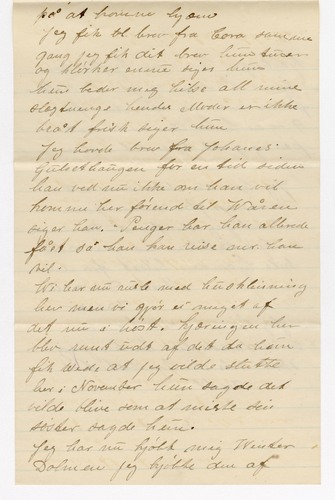 på at komme hjem
Jeg fik et brev fra Cora samme
gang jeg fik dit brev hun
og enme siger hun
hun beder mig hilse all mine
hendes Moder er ikke
frisk siger hun
Jeg havde brev fra Johanes
for en tid siden
han ved nu ikke om han vil
komme her førend til Våren
siger han. Penger har han allerede
fået så han kan reise naar han
vil.
Vi har nu med
her men vi gjør ei meget af
det nu i høst. her
blev rent ud af det da hun
fik vide at jeg vilde slutte
her i November hun sagde det
vilde blive som at miste sin
sister sagde hun.
Jeg har nu kjøbt mig Winter
Dolmen jeg kjøbte den af